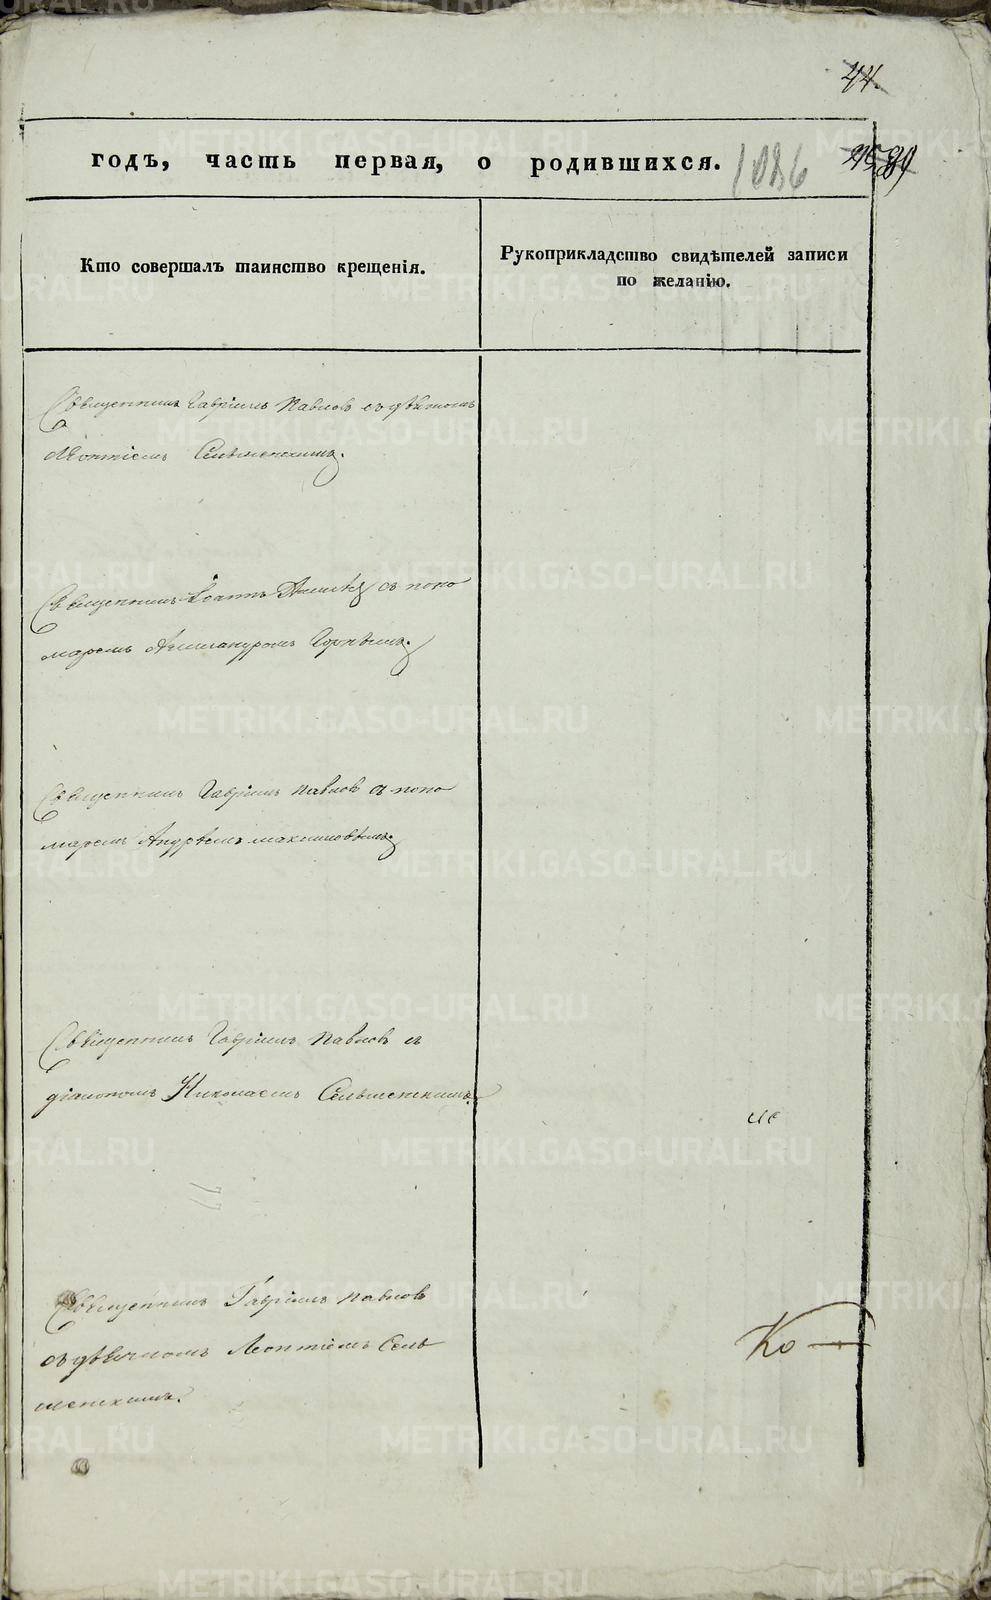 44.
годъ, часть первая, о родившихся.
1086
89
Кто совершалъ таинство крещенія.
Рукоприкладство свидѣтелей записи
по желанію.
Священникъ Гавріилъ Павловъ съ дьячкомъ
Леонтіемъ Сельменскимъ.
Священникъ Іоаннъ съ поно
маремъ Александромъ
Священникъ Гавріилъ Павловъ съ поно
маремъ Андреемъ
Священникъ Гавріилъ Павловъ съ
діакономъ Николаемъ Сельменскимъ.
Священникъ Гавріилъ Павловъ
съ дьячкомъ Леонтіемъ Сель
менскимъ.
Ко
METRIKI.GASO-URAL.RU